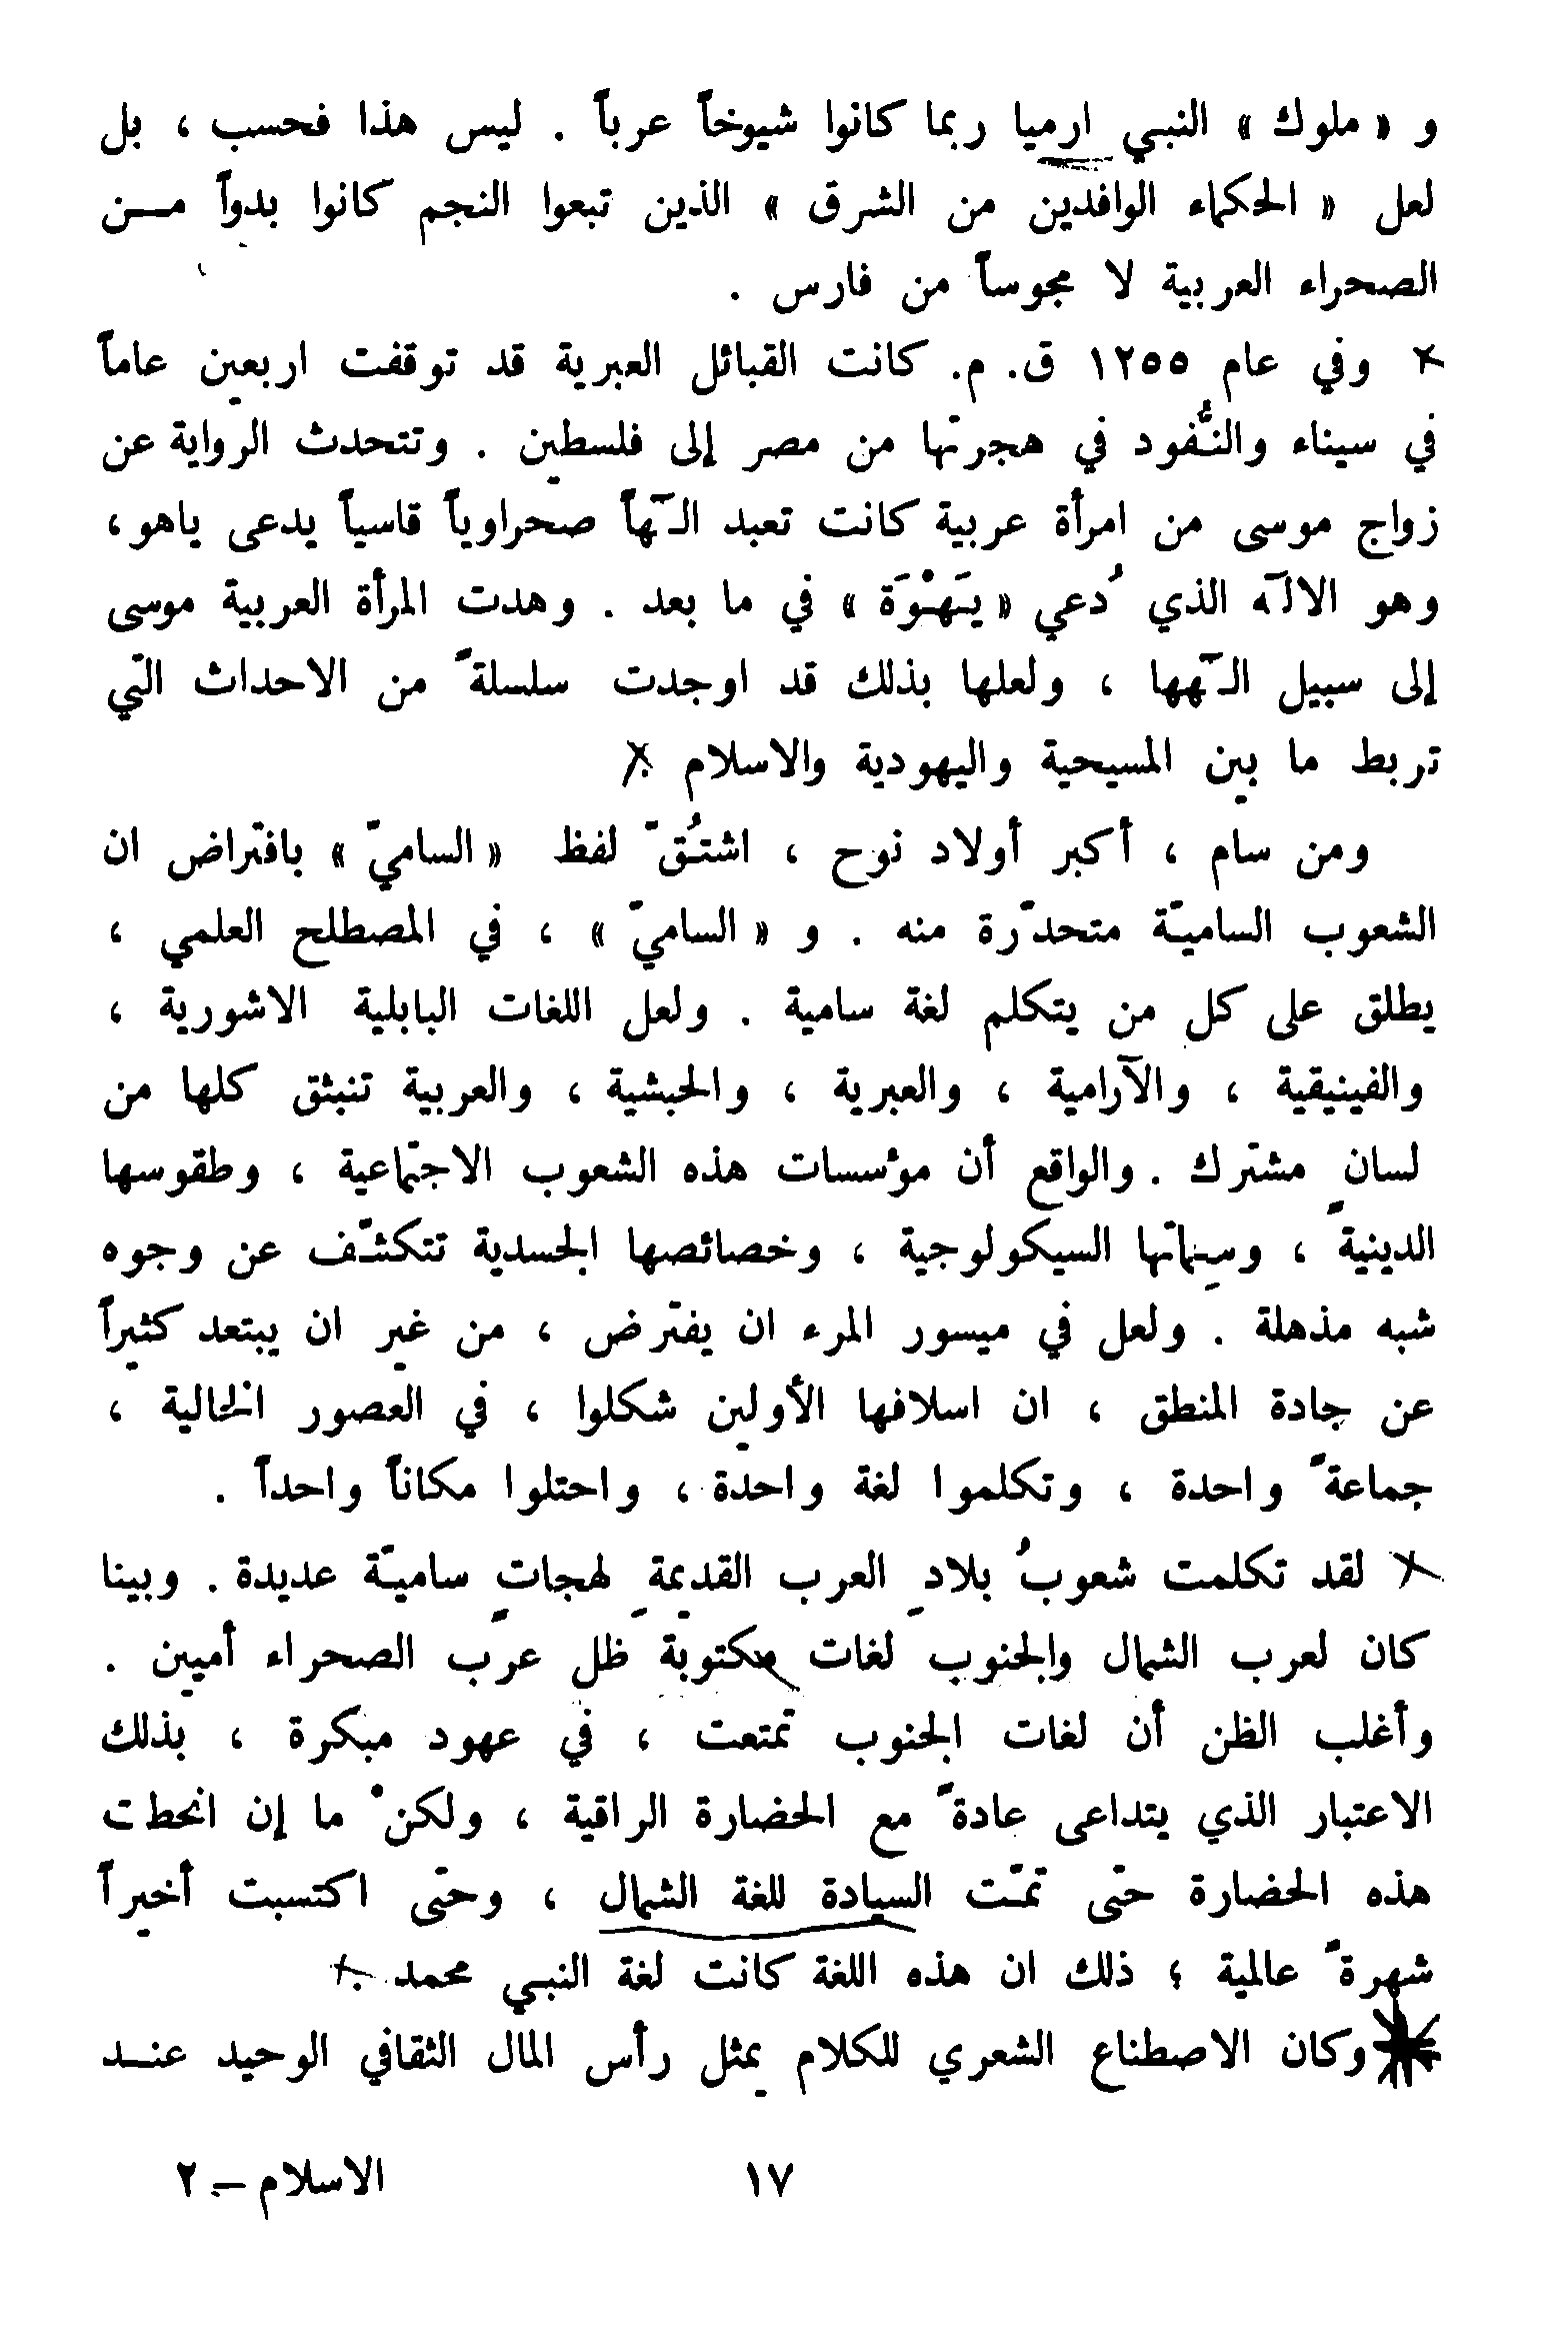 و « ملوك » النبي ارميا ربما كانوا شيوخاً عرباً . ليس هذا فحسب ، بل
لعل « الحكماء الوافدين من الشرق » الذين تبعوا النجم كانوا بدواً مــن
الصحراء العربية لا مجوساً من فارس .
وفي عام ١٢٥٥ ق. م. كانت القبائل العبرية قد توقفت اربعين عاماً
في سيناء والنُّفود في هجرتها من مصر إلى فلسطين . وتتحدث الرواية عن
زواج موسى من امرأة عربية كانت تعبد الـٓهاً صحراوياً قاسياً يدعى ياهو ،
وهو الالٓه الذي دُعي « يَهْوَة » في ما بعد . وهدت المرأة العربية موسى
إلى سبيل الـٓهها ، ولعلها بذلك قد اوجدت سلسلةً من الاحداث التي
تربط ما بين المسيحية واليهودية والاسلام .
ومن سام ، أكبر أولاد نوح ، اشتُقّ لفظ « الساميّ » بافتراض ان
الشعوب الساميّة متحدّرة منه . و « الساميّ » ، في المصطلح العلمي ،
يطلق على كل من يتكلم لغة سامية . ولعل اللغات البابلية الاشورية ،
والفينيقية ، والآرامية ، والعبرية ، والحبشية ، والعربية تنبثق كلها من
لسانٍ مشترك . والواقع أن مؤسسات هذه الشعوب الاجتماعية ، وطقوسها
الدينية ، وسِماتها السيكولوجية ، وخصائصها الجسدية تتكشّف عن وجوه
شبه مذهلة . ولعل في ميسور المرء ان يفترض ، من غير ان يبتعد كثيراً
عن جادة المنطق ، ان اسلافها الأولين شكلوا ، في العصور الخالية ،
جماعةً واحدة ، وتكلموا لغة واحدة ، واحتلوا مكاناً واحداً .
لقد تكلمت شعوبُ بلادِ العرب القديمةِ لهجاتٍ ساميّة عديدة . وبينا
كان لعرب الشمال والجنوب لغات مكتوبة ظل عرب الصحراء أميين .
وأغلب الظن أن لغات الجنوب تمتعت ، في عهود مبكرة ، بذلك
الاعتبار الذي يتداعى عادةً مع الحضارة الراقية ، ولكنْ ما إن انحطت
هذه الحضارة حتى تمّت السيادة للغة الشمال ، وحتى اكتسبت أخيراً
شهرةً عالمية ؛ ذلك ان هذه اللغة كانت لغة النبي محمد .
وكان الاصطناع الشعري للكلام يمثل رأس المال الثقافي الوحيد عنــد
١٧
الاسلام – ٢